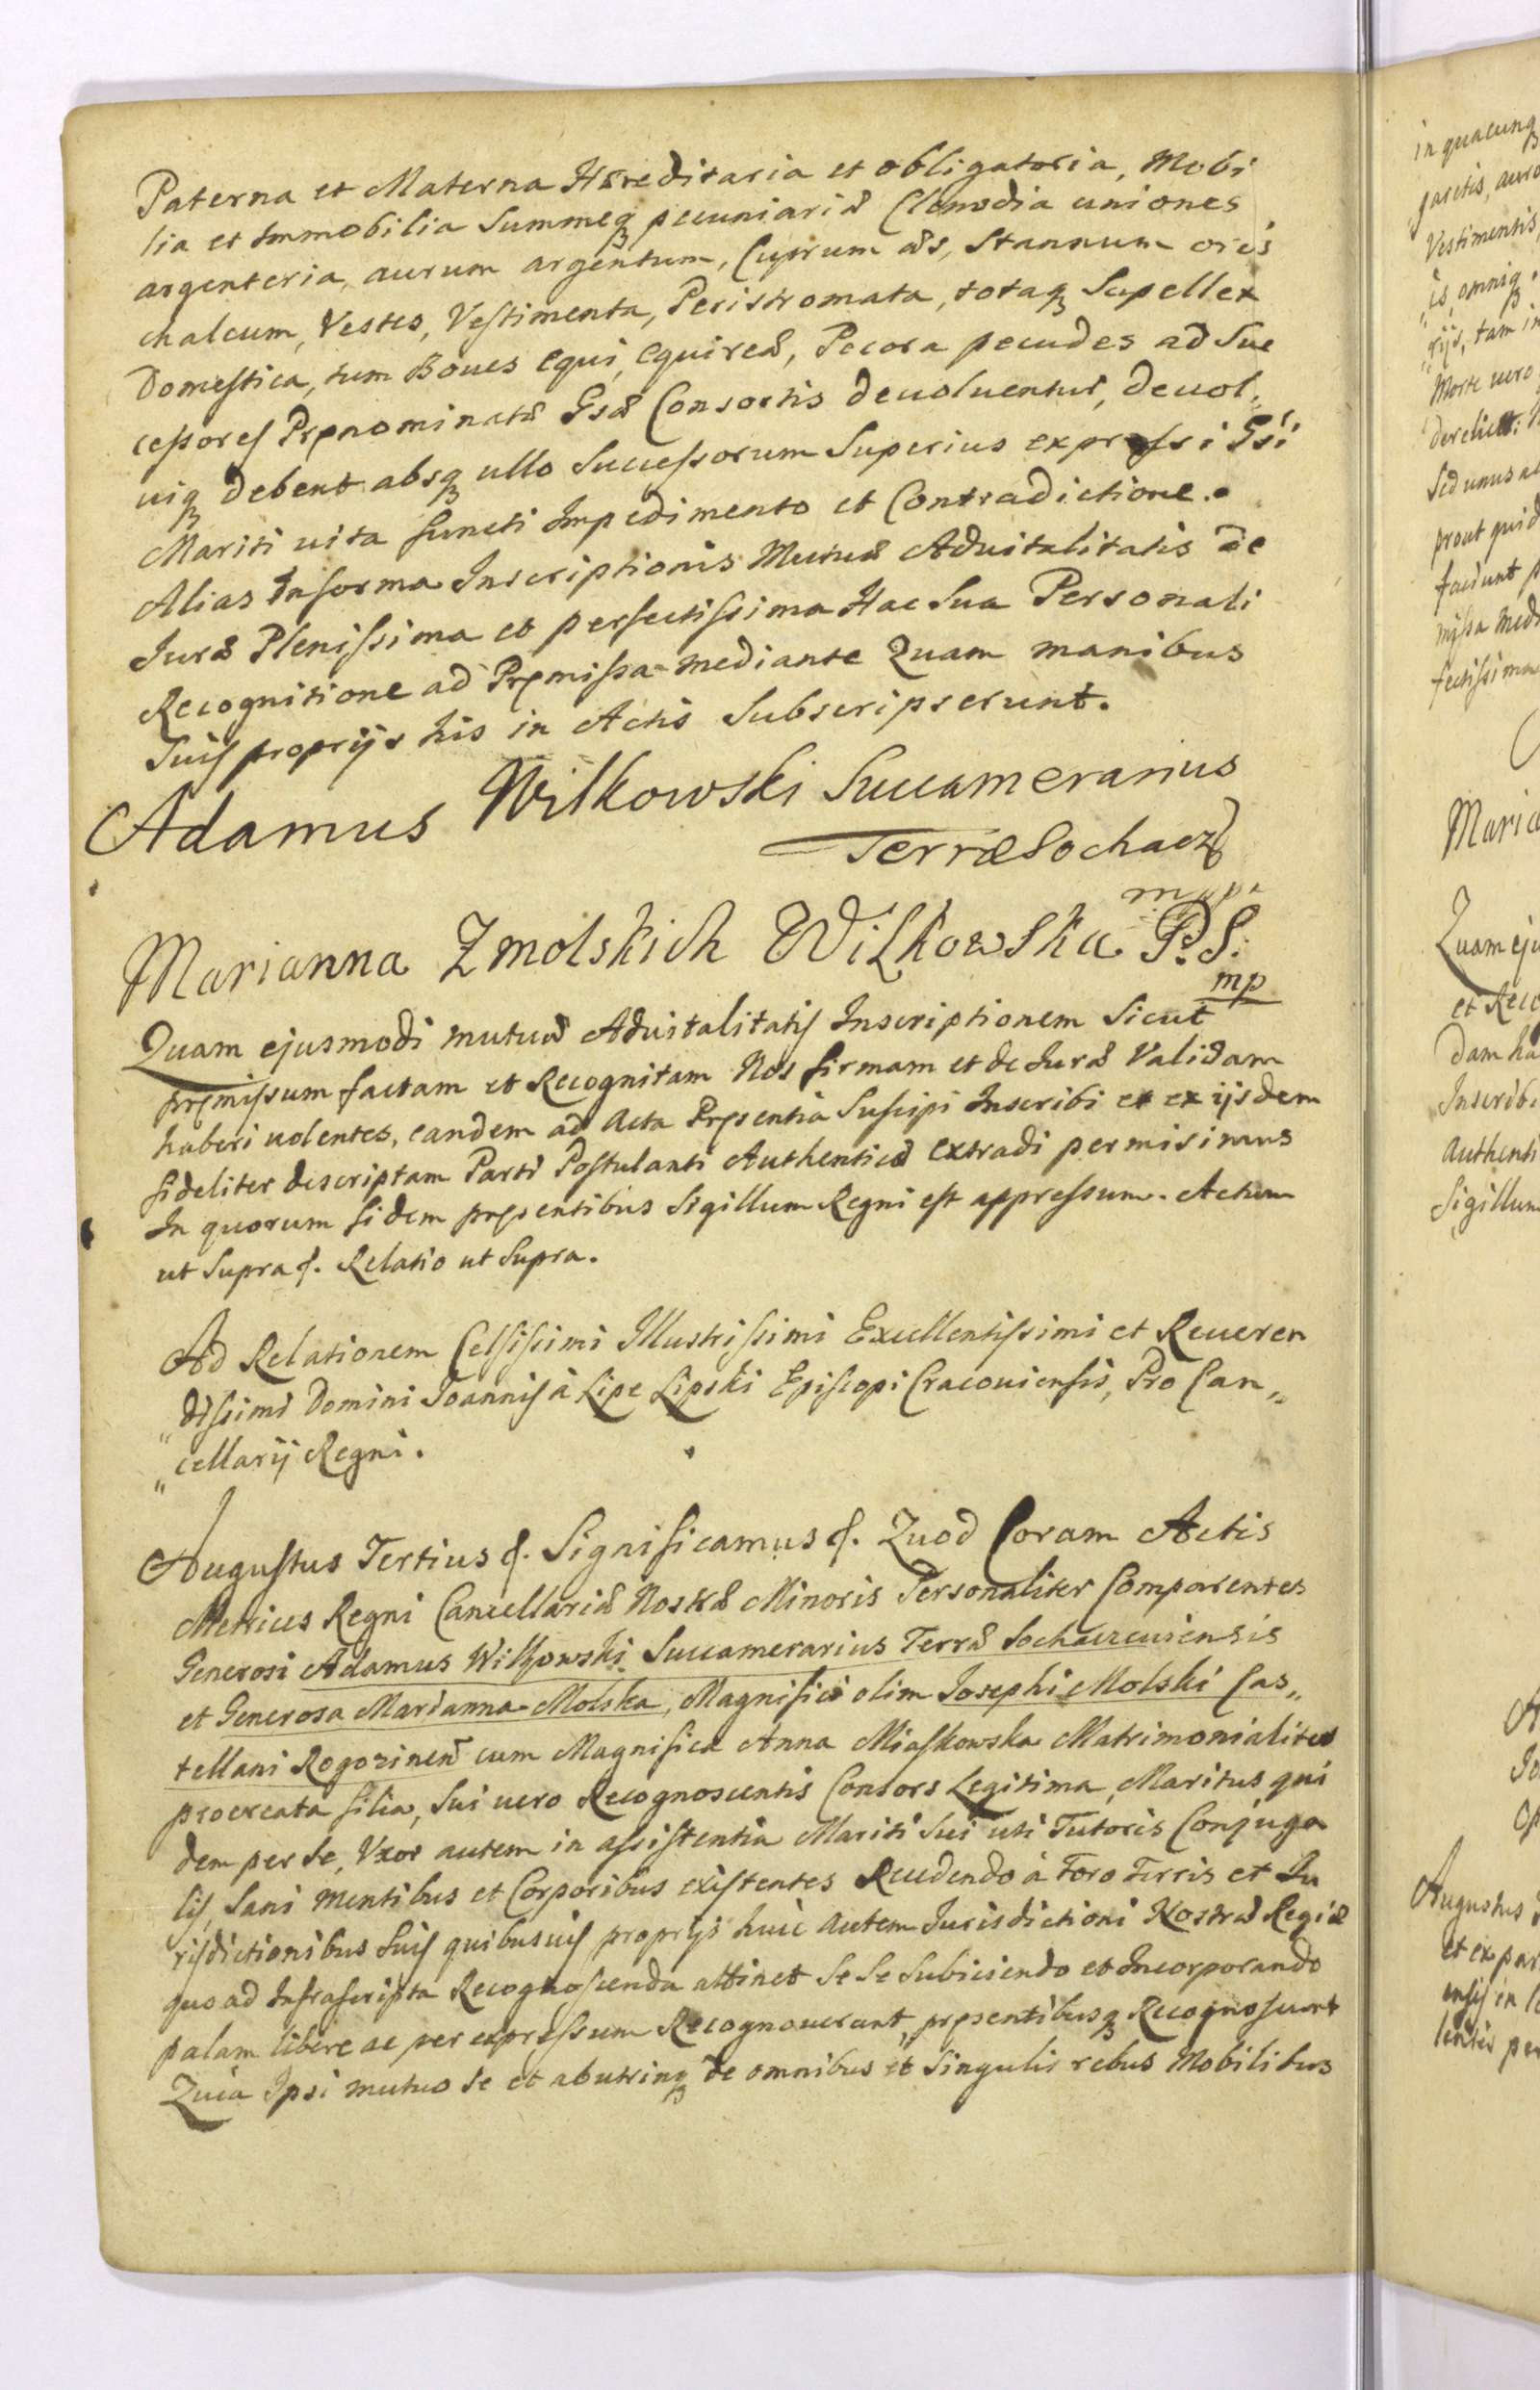 Paterna et Materna Hæreditaria et obligatoria, Mobi
lia et Immobilia Summeq; pecuniariæ Clenodia uniones
argenteria, aurum argentum, Cuprum æs, Stannum ori
chalcum, Vestes, Vestimenta, Peristromata, totaq; Supellex
Domestica, tum Boves equi, equireæ, Pecora pecudes ad Suc
cessores Prænominatæ Gsæ Consortis devoluentur, devol,
uiq; debent absq; ullo Successorum Superius expressi Gsi
Mariti uita functi Impedimento et Contradictione.
Alias In forma Inscriptionis Mutuæ Aduitalitatis de
Juræ Plenissima et perfectissima Hac Sua Personali
Recognitione ad Præmissa mediante Quam manibus
Suis proprijs his in Actis Subscripserunt.
Adamus Wilkowski Succamerarius
Terræ Sochacz
mppa
Marianna Zmolskich Wilkowska P. S.
mp
Quam ejusmodi mutuæ Aduitalitatis Inscriptionem Sicut
præmissum factam et Recognitam Nos firmam et de Juræ Validam
haberi uolentes, eandem ad Acta Præsentia Suscipi Inscribi et ex ijsdem
fideliter descriptam Parti Postulanti Authenticè extradi permisimus
In quorum fidem præsentibus Sigillum Regni est appressum. Actum
ut Supra &. Relatio ut Supra.
Ad Relationem Celsissimi Illustrissimi Excellentissimi et Reueren
„dissimi Domini Joannis à Lipe Lipski Episcopi Cracouiensis, Pro Can„
„cellarij Regni.
Augustus Tertius &. Significamus &. Quod Coram Actis
Metrices Regni Cancellariæ Nostræ Minoris Personaliter Comparentes
Generosi Adamus Wilkowski Succamerarius Terræ Sochaczeuiensis
et Generosa Marianna Molska, Magnifici olim Josephi Molski Cas„
tellani Rogozinen cum Magnifica Anna Miaskowska Matrimonialiter
procreata filia, Sui uero Recognoscentis Consors Legitima, Maritus qui
dem per Se, Uxor autem in assistentia Mariti Sui uti Tutoris Conjuga
lis, Sani Mentibus et Corporibus existentes Recedendo à Foro Terris et Ju
risdictionibus Suis quibusuis proprijs huic autem Jurisdictioni Nostræ Regiæ
quo ad Infrascripta Recognoscenda attinet Se Se Subiciendo et Incorporando
palam libere ac per expressum Recognouerunt, præsentibusq; Recognoscunt
Quia Ipsi mutuo Se et ab utrinq; de omnibus et Singulis rebus Mobilibus
in quacunq;
Vestimentis
omniq;
tam in
Morte uero
Sed unus al
prout quid
faciunt p
missa Med
fectissima
Maria
Quam eju
et Reco
dam ha
Inscribi
Authenti
Sigillum
Augustus
et ex par
ensis in